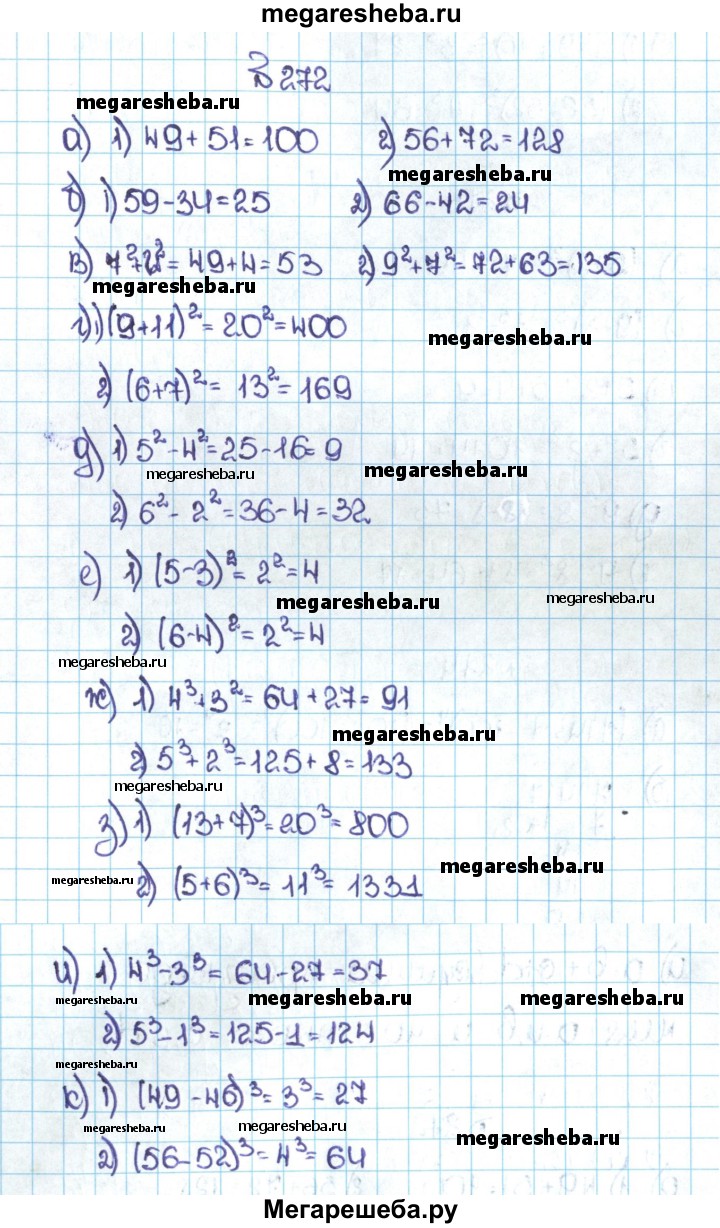 megaresheba.ru
№272
megaresheba.ru
а) 1) 49+51=100 2) 56+72=128
megaresheba.ru
б) 1) 59-34=25 2) 66-42=24
в) 7²+2²=49+4=53 2) 9²+7²=72+63=135
megaresheba.ru
г) 1) (9+11)²=20²=400
megaresheba.ru
2) (6+7)²=13²=169
д) 1) 5²-4²=25-16=9
megaresheba.ru megaresheba.ru
2) 6²-2²=36-4=32
е) 1) (5-3)²=2²=4
megaresheba.ru megaresheba.ru
2) (6-4)²=2²=4
megaresheba.ru
ж) 1) 4³+3²=64+27=91
megaresheba.ru
2) 5³+2³=125+8=133
megaresheba.ru
з) 1) (13+7)³=20³=800
megaresheba.ru
megaresheba.ru 2) (5+6)³=11³=1331
и) 1) 4³-3³=64-27=37
megaresheba.ru megaresheba.ru megaresheba.ru
2) 5³-1³=125-1=124
megaresheba.ru
к) 1) (49-46)³=3³=27
megaresheba.ru megaresheba.ru megaresheba.ru
2) (56-52)³=4³=64
Мегарешеба.ру